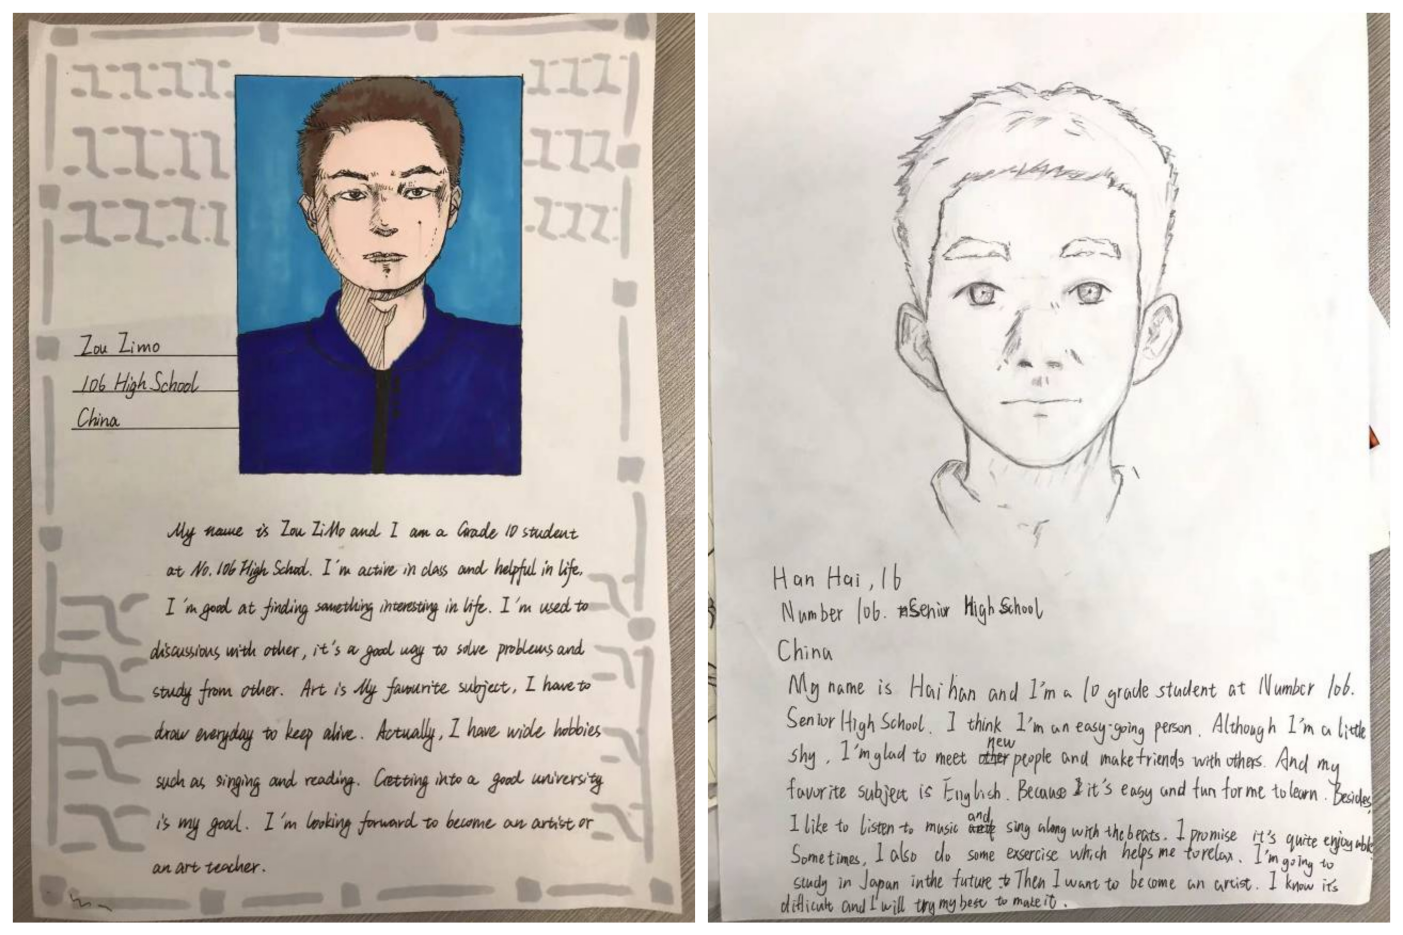 Zou Zimo
106 High School
China
My name is Zou ZiMo and I am a Grade 10 student
at No.106 High School. I'm active in class and helpful in life.
I'm good at finding something interesting in life. I'm used to
discussions with other, it's a good way to solve problems and
study from other. Art is My favourite subject, I have to
draw everyday to keep alive. Actually, I have wide hobbies
such as singing and reading. Getting into a good university
is my goal. I'm looking forward to become an artist or
an art teacher.
Han Hai, 16
Number 106. Senior High School
China
My name is Hai han and I'm a 10 grade student at Number 106.
Senior High School. I think I'm an easy-going person. Although I'm a little
shy, I'm glad to meet new people and make friends with others. And my
favorite subject is English. Because it's easy and fun for me to learn. Besides,
I like to listen to music and sing along with the beats. I promise it's quite enjoyable
Sometimes, I also do some exsercise which helps me to relax. I'm going to
study in Japan in the future Then I want to become an artist. I know it's
difficult and I will try my best to make it.